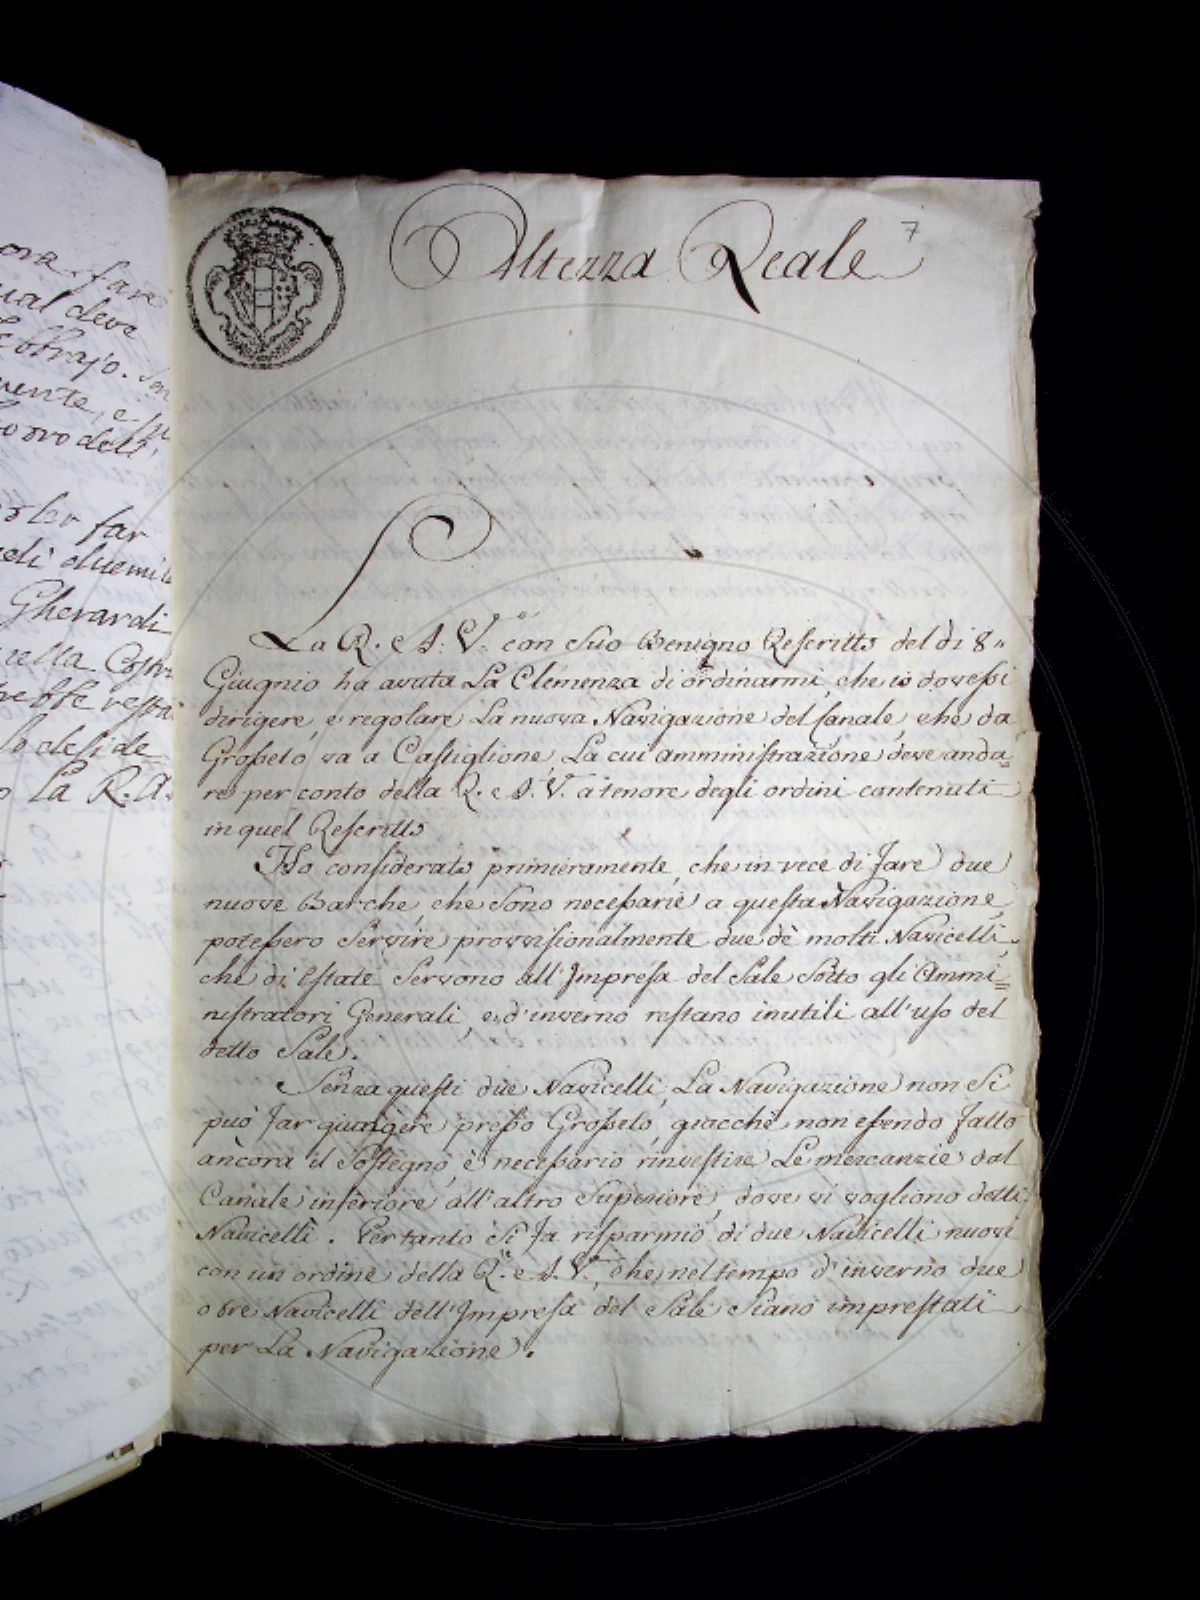 ora fare
ual deve
vente, e
oler far
Gherardi
lo deside=
o la R. A.
7
Altezza Reale
La R. e A: V.ra con Suo Benigno Rescritto del di 8..
Giugnio ha avuta La Clemenza di ordinarmi, che io dovessi
dirigere, e regolare La nuova Navigazione del Canale, che da
Grosseto va a Castiglione, La cui amministrazione deve anda=
re per conto della R. e A. V. a tenore degli ordini contenuti
in quel Rescritto
Ho considerato primieramente, che in vece di fare due
nuove Barche, che Sono necessarie a questa Navigazione,
potessero Servire provvisionalmente due dè molti Navicelli,
che di Estate Servono all'Impresa del Sale Sotto gli Ammi=
nistratori Generali, e d'inverno restano inutili all'uso del
detto Sale.
Senza questi due Navicelli, La Navigazione non Si
può far giungere presso Grosseto, giacchè non essendo fatto
ancora il Sostegno, è necessario rinvestire Le mercanzie dal
Canale inferiore all'altro Superiore, dove vi vogliono detti
Navicelli. Pertanto Si fa risparmio di due Navicelli nuovi
con un ordine della R.le e A. V., che nel tempo d'inverno due
o tre Navicelli dell'Impresa del Sale Siano imprestati
per La Navigazione.